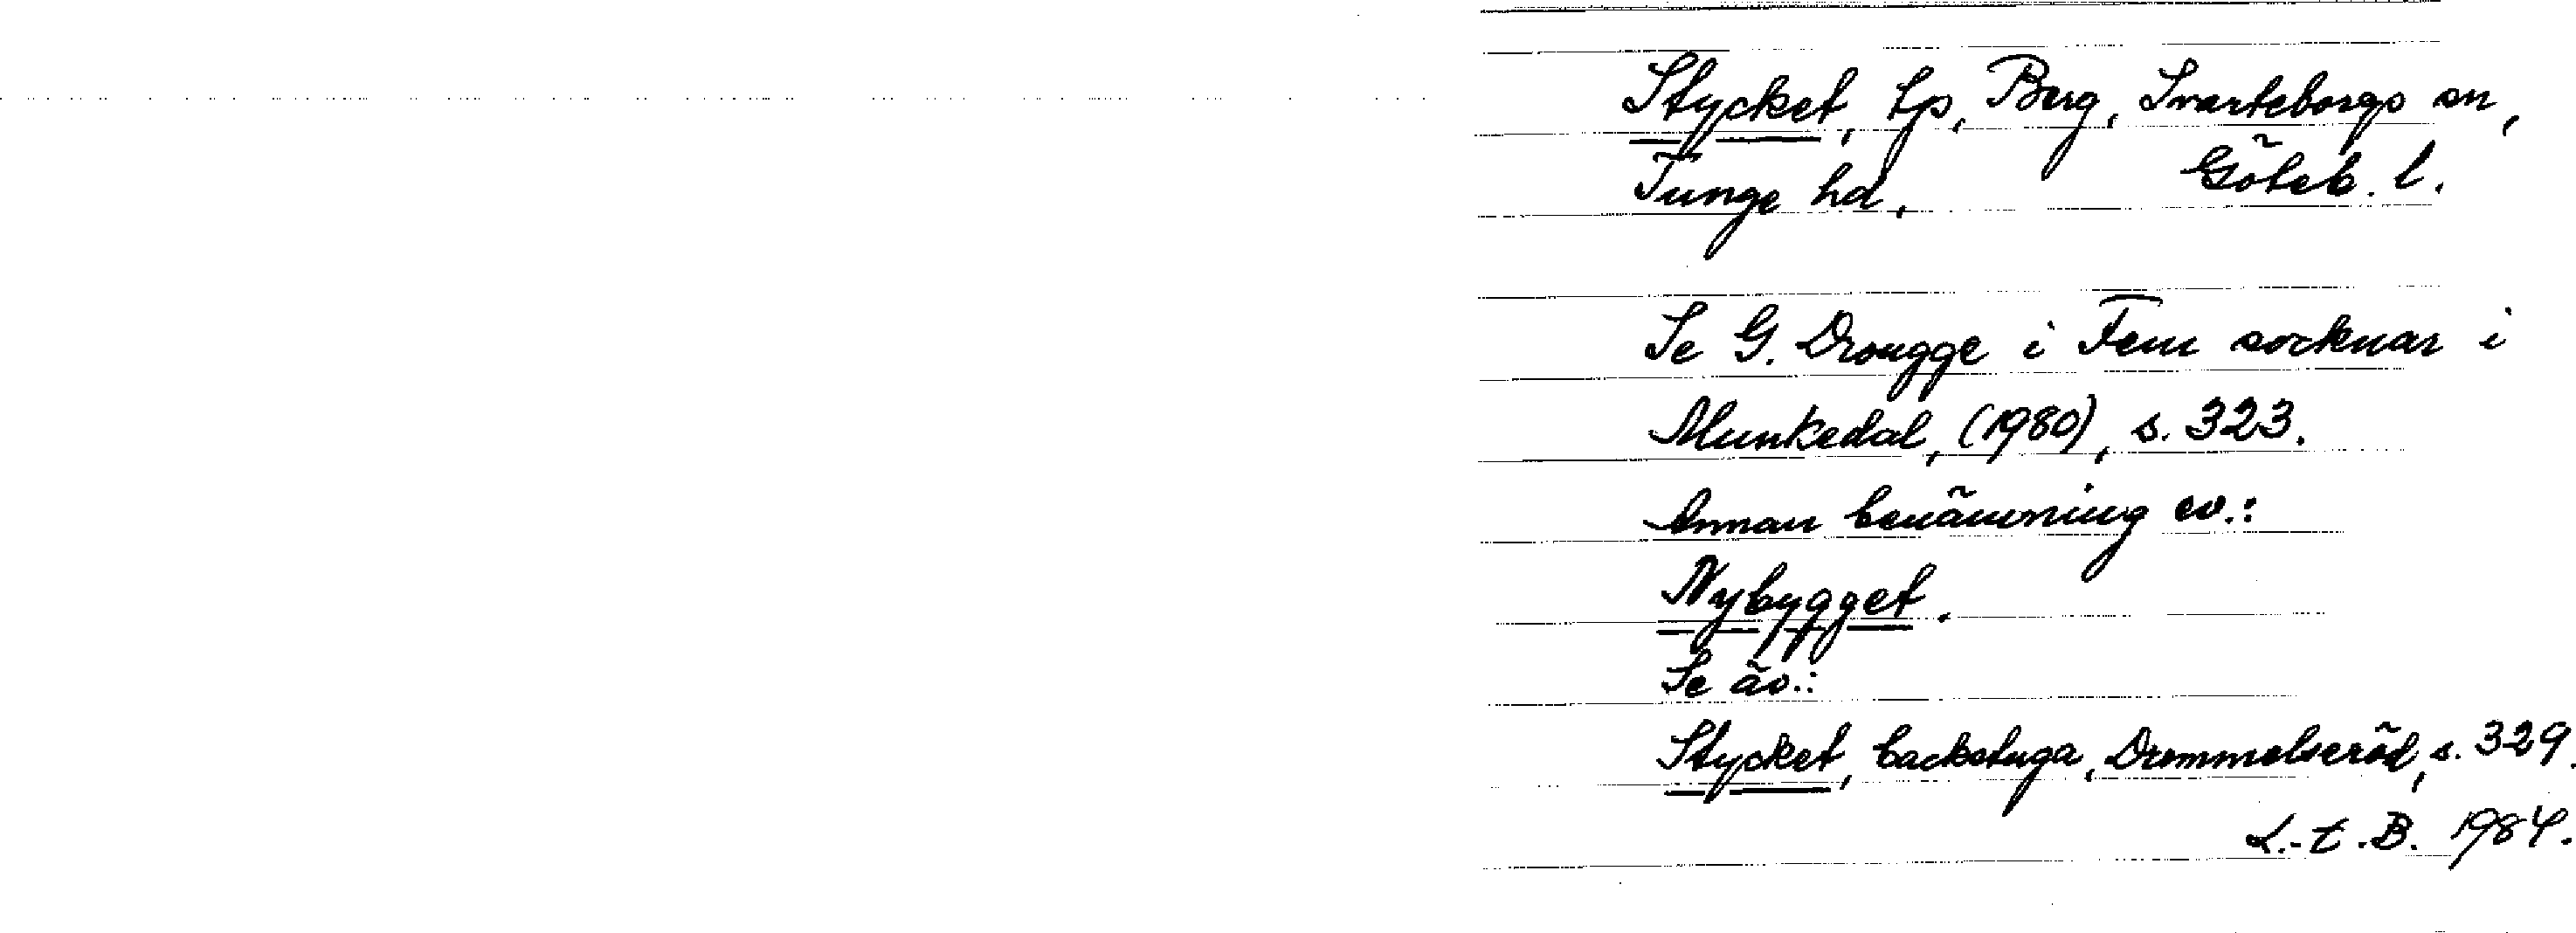 Stycket, tp, Berg, Svarteborgs sn,
Tunge hd. Göteb. l.
Se G. Drougge i Fem socknar i
Munkedal, (1980), s. 323.
Annan benämning ev.:
Nybygget.
Se äv.:
Stycket, backstuga, Drommelseröd, s. 329.
L.-t. B. 1984.